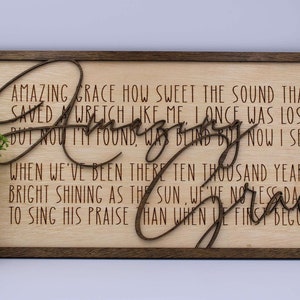 AMAZING GRACE HOW SWEET THE SOUND THA
SAVED A WRETCH LIKE ME. I ONCE WAS LOS
BUT NOW I'M FOUND, WAS BLIND BUT NOW I S
WHEN WE'VE BEEN THERE TEN THOUSAND YEAR
BRIGHT SHINING AS THE SUN, WE'VE NO LESS DA
TO SING HIS PRAISE THAN WHEN WE FIRST BEGU
Amazing
Grac